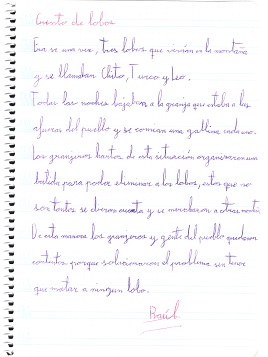 Cuento de lobos
Era se una vez, tres lobos que vivían en la montaña
y se llamaban Chito, Turco y Leo.
Todas las noches bajaban a la granja que estaba a las
afueras del pueblo y se comían una gallina cada uno.
Los granjeros hartos de esta situación organizaron una
batida para poder eliminar a los lobos, estos que no
son tontos se dieron cuenta y se marcharon a otras
De esta manera los granjeros y gente del pueblo quedaron
contentos porque solucionaron el problema sin tener
que matar a ningun lobo.
Raúl